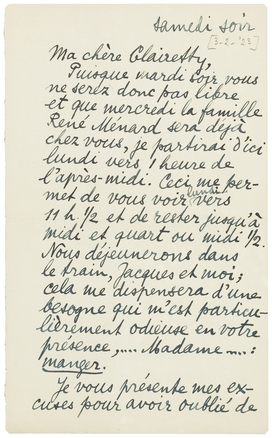 samedi soir
[3-2-'23]
Ma chère Clairetty,
Puisque mardi soir vous
ne serez donc pas libre
et que mercredi la famille
René Ménard sera déjà
chez vous, je partirai d'ici
lundi vers 1 heure de
l'après-midi. Ceci me per-
met de vous voir lundi vers
11 h 1/2 et de rester jusqu'à
midi et quart ou midi 1/2.
Nous déjeunerons dans
le train, Jacques et moi;
cela me dispensera d'une
besogne qui m'est particu-
lièrement odieuse en votre
présence,.... Madame ....:
manger.
Je vous présente mes ex-
cuses pour avoir oublié de